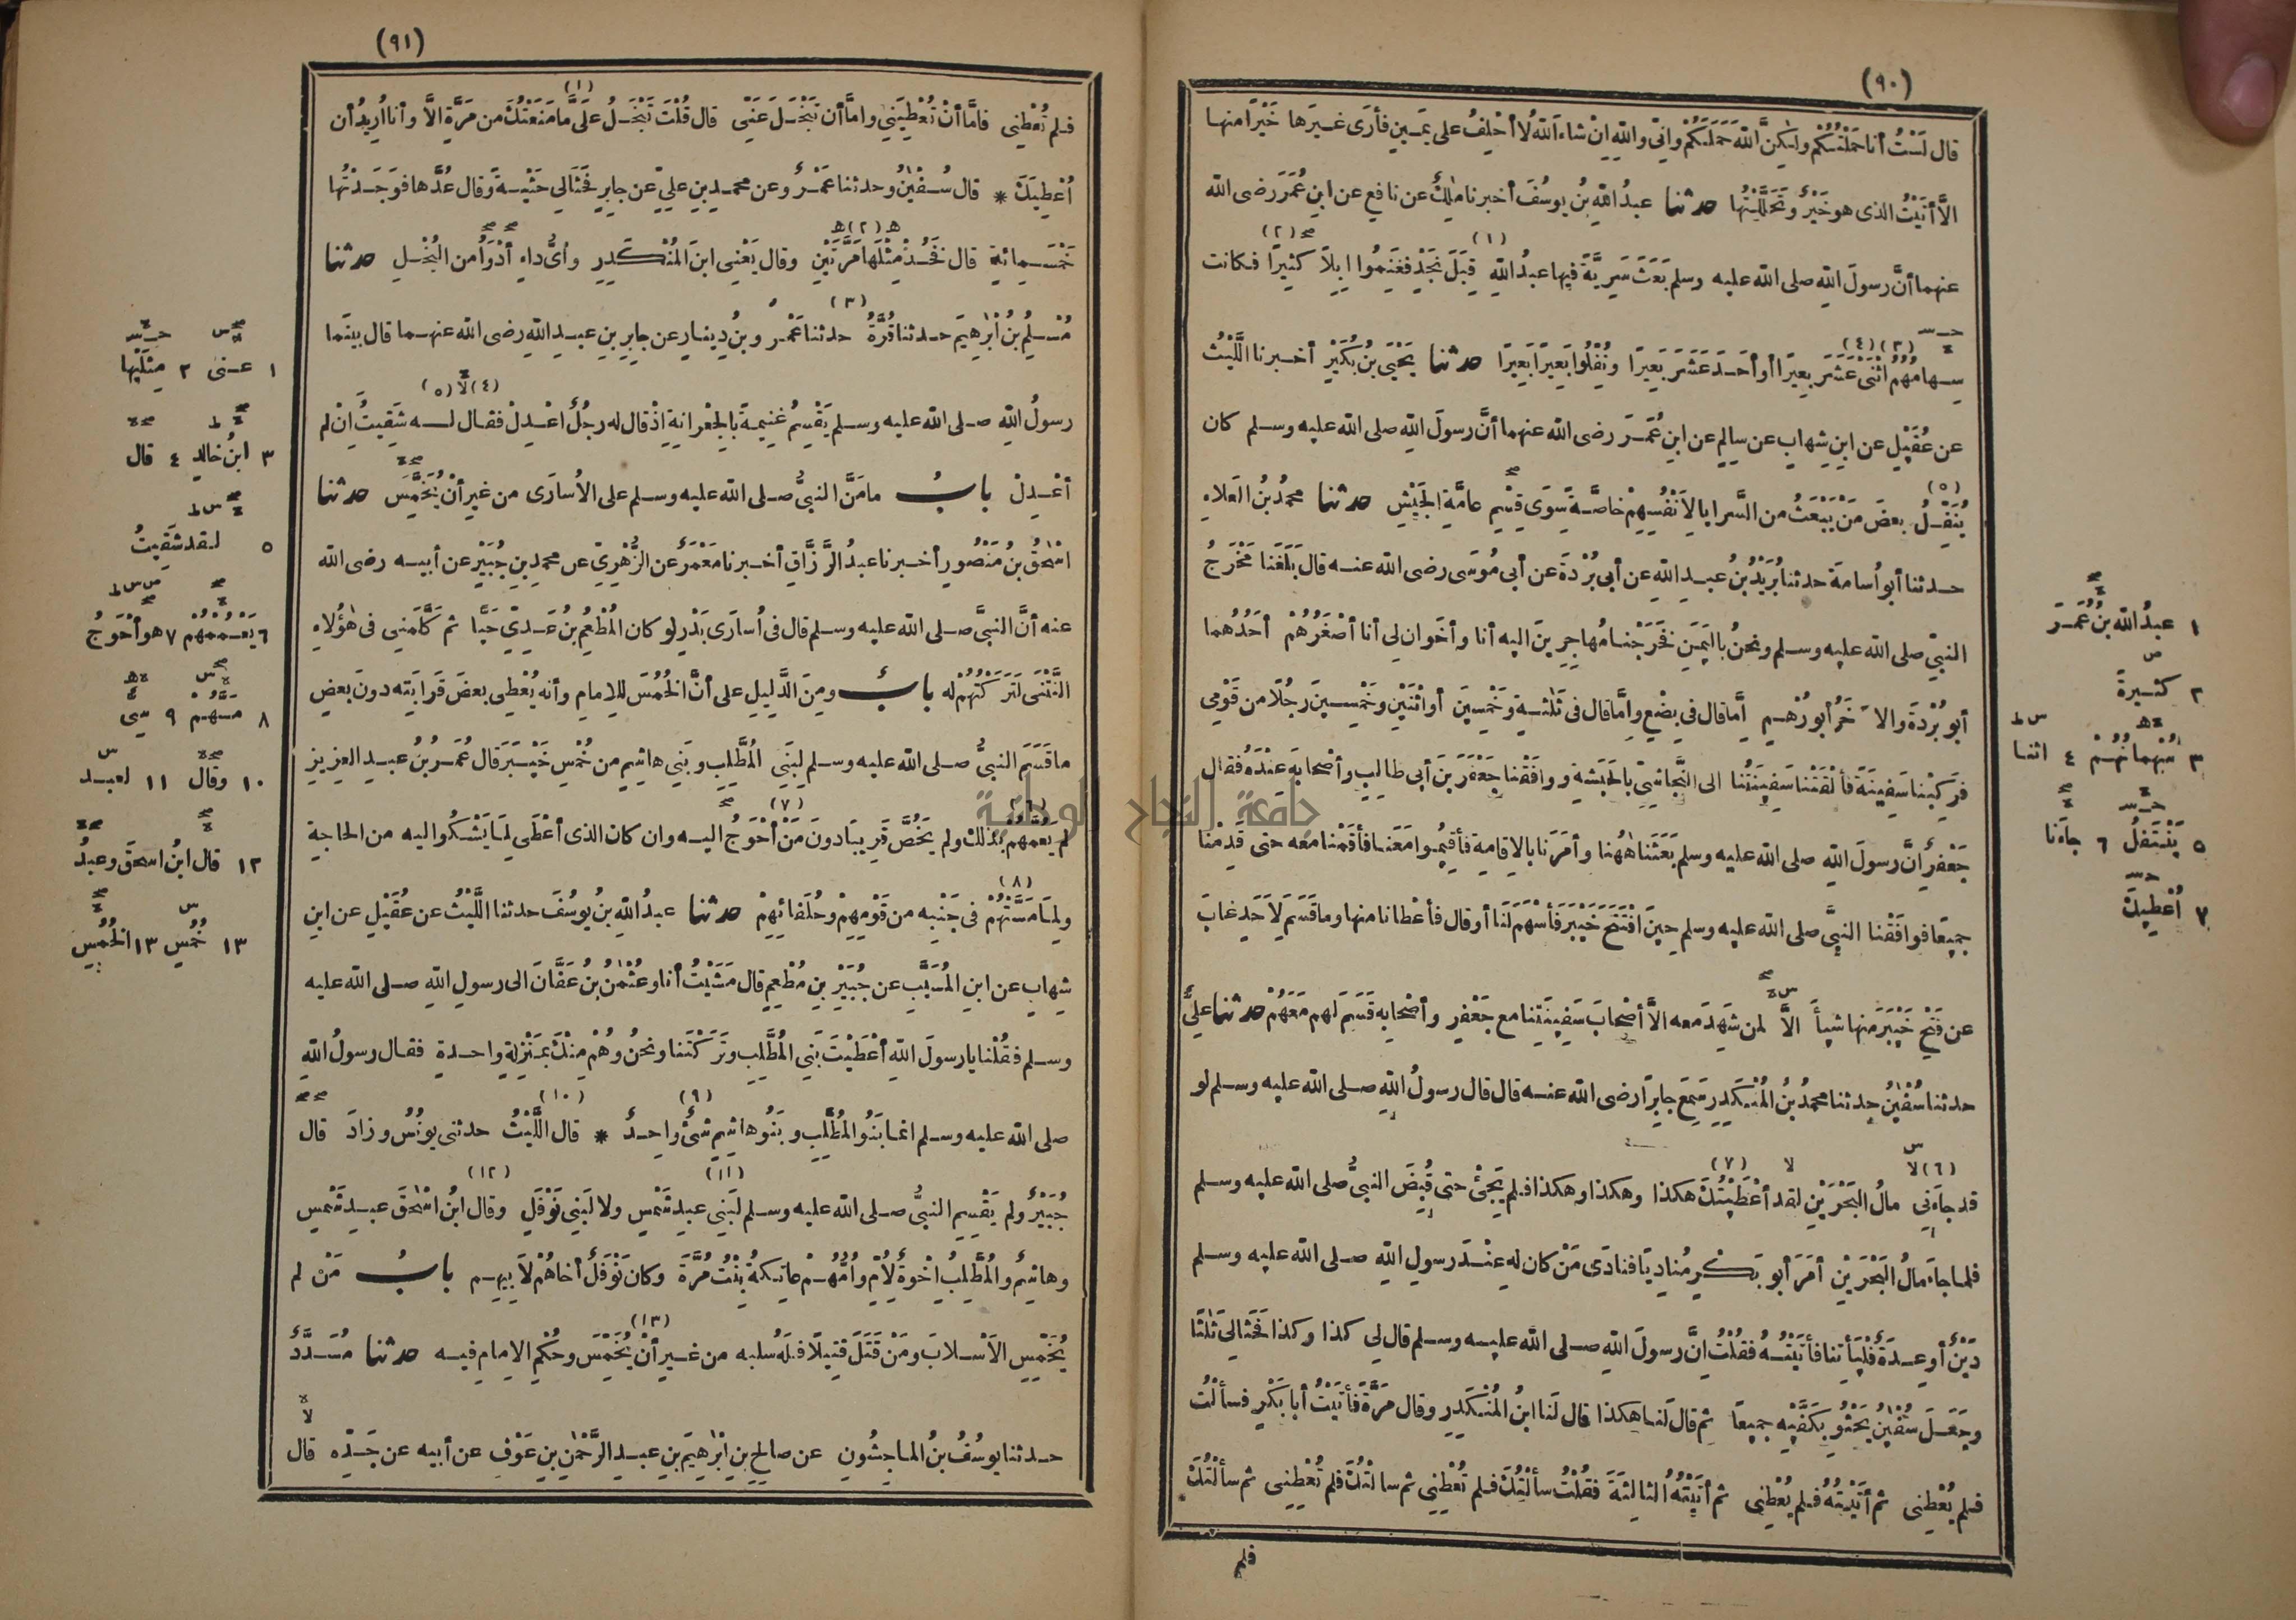 (٩٠)
قال لَسْتُ أنا حَمَلْتُكُمْ ولكِنَّ اللّهَ حَمَلَكُمْ وإنّى واللّهِ إنْ شاءَ اللّهُ لا أحْلِفُ على يَمِينٍ فأرَى غيرَها خَيْرًا منها
الاّ أتَيْتُ الذى هو خَيْرٌ وتَحَلَّلْتُها حدثنا عبدُ اللّهِ بنُ يوسُفَ أخبرنا مٰلِكٌ عن نافع عن ابنِ عُمَرَ رضى الله
(١) (٢)
عنهما أنَّ رسولَ اللّهِ صلى الله عليه وسلم بَعَثَ سَرِيَّةً فيها عبدُ اللّهِ قِبَلَ نَجْدٍ فغَنِمُوا إبِلاً كثيرًا فكانت
(٣) (٤)
سِهامُهُمْ اثْنَىْ عَشَرَ بعيرًا أو أحَدَ عَشَرَ بَعيرًا ونُفِّلُوا بَعيرًا بَعيرًا حدثنا يَحْيَى بنُ بُكَيْرٍ أخبرنا اللَّيْثُ
عن عُقَيْلٍ عن ابنِ شِهابٍ عن سالِمٍ عن ابنِ عُمَرَ رضى الله عنهما أنَّ رسولَ اللّهِ صلى الله عليه وسلم كان
(٥)
يُنَفِّلُ بعضَ مَنْ يَبْعَثُ من السَّرايا لِأَنْفُسِهِمْ خاصَّةً سِوَى قِسْمِ عامَّةِ الجَيْشِ حدثنا محمدُ بنُ العَلاءِ
حدثنا أبو اُسامةَ حدثنا بُرَيْدُ بنُ عبدِ اللّهِ عن أبى بُرْدَةَ عن أبى مُوسَى رضى الله عنه قال بَلَغَنا مَخْرَجُ
النبىِّ صلى الله عليه وسلم ونحنُ باليَمَنِ فَخَرَجْنا مُهاجِرِينَ اليه أنا وأخَوانِ لى أنا أصْغَرُهُمْ أحَدُهُما
أبو بُرْدَةَ والآخَرُ أبو رُهْمٍ اِمّا قال فى بِضْعٍ واِمّا قال فى ثَلٰثةٍ وخَمْسِينَ أو اثْنَيْنِ وخَمْسِينَ رجُلاً من قَوْمِى
فَرَكِبْنا سَفِينَةً فألْقَتْنا سَفِينَتُنا الى النَّجاشِىِّ بالحَبَشَةِ ووافَقْنا جَعْفَرَ بنَ أبى طالِبٍ وأصْحابَهُ عِنْدَهُ فقال
جَعْفَرٌ اِنَّ رسولَ اللّهِ صلى الله عليه وسلم بَعَثَنا هٰهُنا وأمَرَنا بالاِقامةِ فأقِيمُوا مَعَنا فأقَمْنا مَعَهُ حتى قَدِمْنا
جميعًا فوافَقْنا النبىَّ صلى الله عليه وسلم حِينَ افْتَتَحَ خَيْبَرَ فأَسْهَمَ لَنا أو قال فأعْطانا منها وما قَسَمَ لاَحَدٍ غابَ
عن فَتْحِ خَيْبَرَ منها شيأً الاَّ لمن شَهِدَ معه الاَّ أصْحابَ سَفِينَتِنا مع جَعْفَرٍ وأصْحابِهِ قَسَمَ لهم مَعَهُمْ حدثنا علىٌّ
حدثنا سُفْيٰنُ حدثنا محمدُ بنُ المُنْكَدِرِ سَمِعَ جابِرًا رضى الله عنه قال قال رسولُ اللّهِ صلى الله عليه وسلم لو
(٦) (٧)
قد جاءَنِى مالُ البَحْرَيْنِ لقد أعْطَيْتُكَ هكذا وهكذا وهكذا فلم يَجِئْ حتى قُبِضَ النبىُّ صلى الله عليه وسلم
فلما جاءَ مالُ البَحْرَيْنِ أمَرَ أبو بَكْرٍ مُنادِيًا فنادَى مَنْ كان له عِنْدَ رسولِ اللّهِ صلى الله عليه وسلم
دَيْنٌ أو عِدَةٌ فَلْيَأْتِنا فأتَيْتُهُ فقُلْتُ اِنَّ رسولَ اللّهِ صلى الله عليه وسلم قال لى كذا وكذا فَحَثَالى ثَلٰثًا
وجَعَلَ سُفْيٰنُ يَحْثُو بكَفَّيْهِ جميعًا ثم قال لَنا هكذا قال لَنا ابنُ المُنْكَدِرِ وقال مَرَّةً فأتَيْتُ أبا بَكْرٍ فسألْتُ
فلم يُعْطِنى ثم أتَيْتُهُ فلم يُعْطِنى ثم أتَيْتُهُ الثالِثَةَ فقُلْتُ سألْتُكَ فلم تُعْطِنِى ثم سألْتُكَ فلم تُعْطِنِى ثم سألْتُكَ
فلم
١ عبدُ الله بنُ عُمَرَ
٢ كثيرةً
٣ سُهْمانُهُمْ ٤ اثنا
٥ يَنْتَفِلُ ٦ جاءَنا
٧ أُعْطِيكَ
(٩١)
(١)
فلم تُعْطِنى فاِمّا أنْ تُعْطِيَنِى واِمّا أن تَبْخَلَ عَنّى قال قُلْتَ تَبْخَلُ علَىَّ ما مَنَعْتُكَ من مَرَّةٍ الاَّ وأنا اُرِيدُ أن
اُعْطِيَكَ * قال سُفْيٰنُ وحدثنا عَمْرٌو عن محمدِ بنِ علِىٍّ عن جابِرٍ فَحَثَالى حَثْيَةً وقال عُدَّها فوَجَدْتُها
(٢)
خَمْسَمِائةٍ قال فَخُذْ مِثْلَها مَرَّتَيْنِ وقال يَعْنِى ابنَ المُنْكَدِرِ وأىُّ داءٍ أدْوَأُ من البُخْلِ حدثنا
(٣)
مُسْلِمُ بنُ اِبْرٰهِيمَ حدثنا قُرَّةُ حدثنا عَمْرُو بنُ دِينارٍ عن جابِرِ بنِ عبدِ اللّهِ رضى الله عنهما قال بينَما
(٤) لا (٥)
رسولُ اللّهِ صلى الله عليه وسلم يَقْسِمُ غَنِيمَةً بالجِعْرانةِ اِذْ قال له رجُلٌ اعْدِلْ فقال له شَقِيتُ اِنْ لم
أعْدِلْ بابُ ما مَنَّ النبىُّ صلى الله عليه وسلم على الاُسارَى من غيرِ أنْ يُخَمِّسَ حدثنا
اِسْحٰقُ بنُ مَنْصُورٍ أخبرنا عبدُ الرَّزَّاقِ أخبرنا مَعْمَرٌ عن الزُّهْرِىِّ عن محمدِ بنِ جُبَيْرٍ عن أبيه رضى الله
عنه أنَّ النبىَّ صلى الله عليه وسلم قال فى اُسارَى بَدْرٍ لو كان المُطْعِمُ بنُ عَدِىٍّ حَيًّا ثم كَلَّمَنِى فى هٰؤُلاءِ
النَّتْنَى لَتَرَكْتُهُمْ له بابٌ ومِنَ الدَّلِيلِ على أنَّ الخُمُسَ للاِمامِ وأنه يُعْطِى بعضَ قَرابَتِه دونَ بعضٍ
ما قَسَمَ النبىُّ صلى الله عليه وسلم لِبَنِى المُطَّلِبِ وبَنِى هاشِمٍ من خُمْسِ خَيْبَرَ قال عُمَرُ بنُ عبدِ العزيزِ
(٦) (٧)
لم يَعُمَّهُمْ بذٰلك ولم يَخُصَّ قَرِيبًا دونَ مَنْ أحْوَجُ اليه وان كان الذى أعْطَى لِمَا يَشْكُو اليه من الحاجةِ
(٨)
ولِمَا مَسَّتْهُمْ فى جَنْبِه من قَوْمِهِمْ وحُلَفائِهِمْ حدثنا عبدُ اللّهِ بنُ يوسُفَ حدثنا اللَّيْثُ عن عُقَيْلٍ عن ابنِ
شِهابٍ عن ابنِ المُسَيَّبِ عن جُبَيْرِ بنِ مُطْعِمٍ قال مَشَيْتُ أنا وعُثْمٰنُ بنُ عَفَّانَ الى رسولِ اللّهِ صلى الله عليه
وسلم فقُلْنا يا رسولَ اللّهِ أعْطَيْتَ بَنِى المُطَّلِبِ وتَرَكْتَنا ونحنُ وهُمْ مِنْكَ بمَنْزِلةٍ واحدةٍ فقال رسولُ اللّهِ
(٩) (١٠)
صلى الله عليه وسلم انما بَنُو المُطَّلِبِ وبَنُو هاشِمٍ شىْءٌ واحدٌ * قال اللَّيْثُ حدثنى يونُسُ وزادَ قال
(١١) (١٢)
جُبَيْرٌ ولم يَقْسِمِ النبىُّ صلى الله عليه وسلم لبَنِى عبدِ شَمْسٍ ولا لبَنِى نَوْفَلٍ وقال ابنُ اِسْحٰقَ عبدُ شَمْسٍ
وهاشِمٌ والمُطَّلِبُ اِخْوةٌ لاُمٍّ واُمُّهُمْ عاتِكةُ بِنْتُ مُرَّةَ وكان نَوْفَلٌ أخاهُمْ لاَبِيهِم بابُ مَنْ لم
(١٣)
يُخَمِّسِ الاَسْلابَ ومَنْ قَتَلَ قتيلاً فلَهُ سلَبه من غيرِ أنْ يُخَمِّسَ وحُكْمِ الاِمامِ فيه حدثنا مُسَدَّدٌ
لا
حدثنا يوسُفُ بنُ الماجِشُونِ عن صالِحِ بنِ اِبْرٰهِيمَ بنِ عبدِ الرَّحْمٰنِ بنِ عَوْفٍ عن أبيه عن جَدِّه قال
١ عنى ٢ مِثْلَيْها
٣ ابنُ خالدٍ ٤ قال
٥ لقد شَقِيتُ
٦ يَعُمَّهُم ٧ هو أحْوَجُ
٨ مَسَّهُمْ ٩ سِىٌّ
١٠ وقال ١١ لعبد
١٢ قال ابنُ اسحقَ وعبدُ
١٣ خُمُسٍ ١٣ الخُمُسِ
جامعة النجاح الوطنية